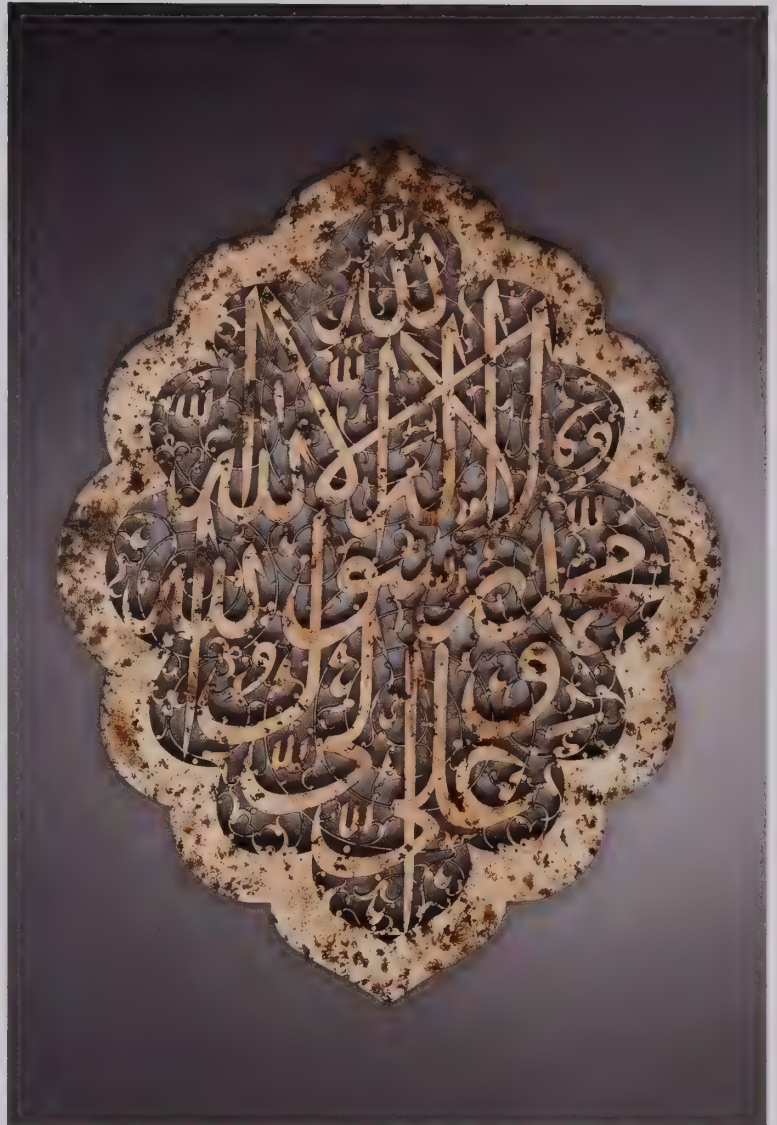 لا اله الا الله
محمد رسول الله
علي ولي الله